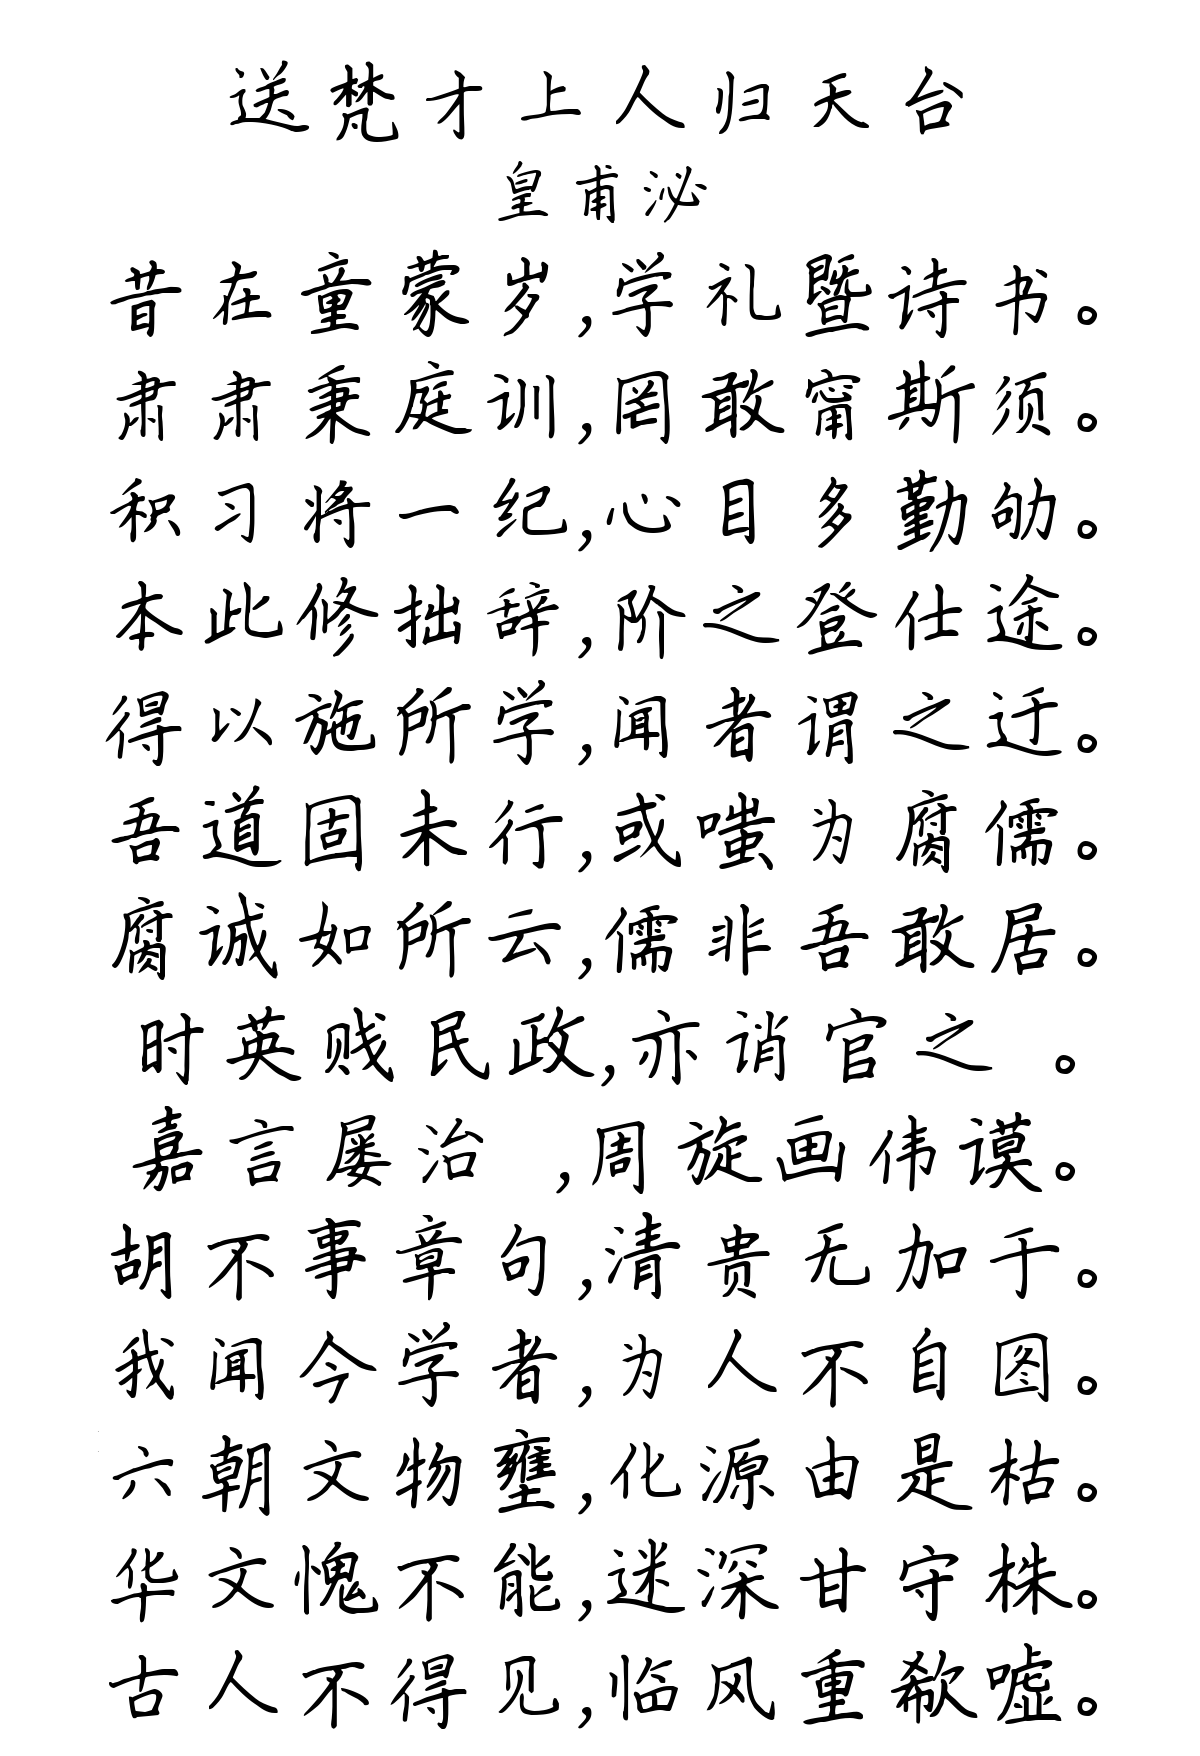 送梵才上人归天台
皇甫泌
昔在童蒙岁,学礼暨诗书。
肃肃秉庭训,罔敢甯斯须。
积习将一纪,心目多勤劬。
本此修拙辞,阶之登仕途。
得以施所学,闻者谓之迂。
吾道固未行,或嗤为腐儒。
腐诚如所云,儒非吾敢居。
时英贱民政,亦诮官之 。
嘉言屡治 ,周旋画伟谟。
胡不事章句,清贵无加于。
我闻今学者,为人不自图。
六朝文物壅,化源由是枯。
华文愧不能,迷深甘守株。
古人不得见,临风重欷嘘。